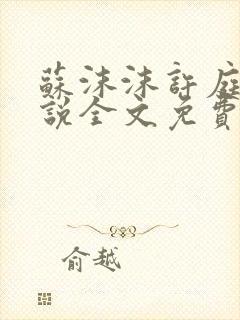 蘇沫沫許庭
說全文免費
俞越